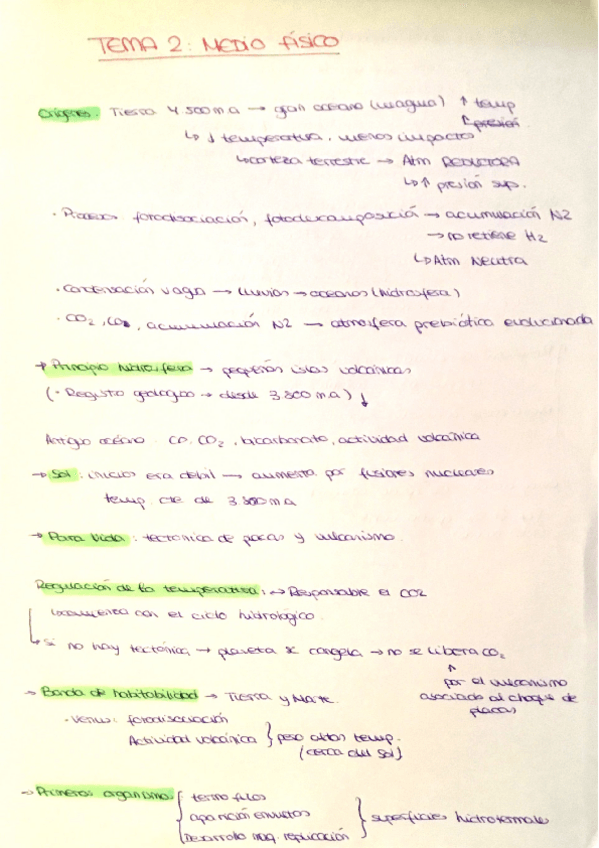 TEMA 2: MEDIO FÍSICO
Orígenes. Tierra 4 500 m a → gran océano (magma) ↑ temp
↑ presión
↳ ↓ temperatura, menos impactos
↳ corteza terrestre → Atm REDUCTORA
↳ ↑ presión sup.
· Procesos fotodisociación, fotodescomposición → acumulación N2
→ no retiene H2
↳ Atm Neutra
· Condensación vapor → lluvias → océanos (hidrosfera)
· CO2, acumulación N2 → atmósfera prebiótica evolucionada
→ Principio hidrosfera → pequeñas islas volcánicas
(· Registro geológico → desde 3 800 m a) ↓
Antiguo océano: CO, CO2, bicarbonato, actividad volcánica
→ Sol: inicios era débil → aumenta por fusiones nucleares
temp. cte de 3 800 m a
→ Para vida: tectónica de pacas y vulcanismo.
Regulación de la temperatura: → Responsable el CO2
con el ciclo hidrológico.
↳ si no hay tectónica → planeta se congela → no se libera CO2
↑
por el vulcanismo
asociado al choque de
placas
→ Banda de habitabilidad → Tierra y Marte.
· Venus: fotodisociación
Actividad volcánica } pero altas temp.
(cerca del Sol)
→ Primeros organismos { termófilos
aparición
Desarrollo maq. replicación } superficies hidrotermales